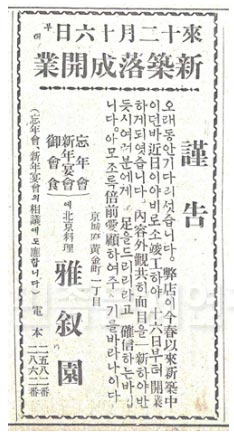 來十二月十六日부터
新築落成開業
謹告
오래동안기다리섯슴니다。弊店이今春以來新築中
이던바近日이야비로소竣工하야十六日부터開業
하게되엿슴니다。內容外觀共히面目을一新하야반
듯시여러분에게 足을드리리라고 確信하는바임
니다。아모조록倍前愛顧하여주시기를바라나이다
京城府黃金町一丁目
忘年會
新年宴會
御會食
에北京料理 雅叙園
(忘年會、新年宴會의相議에도應합니다)
電本
二五八二番
二八六二番